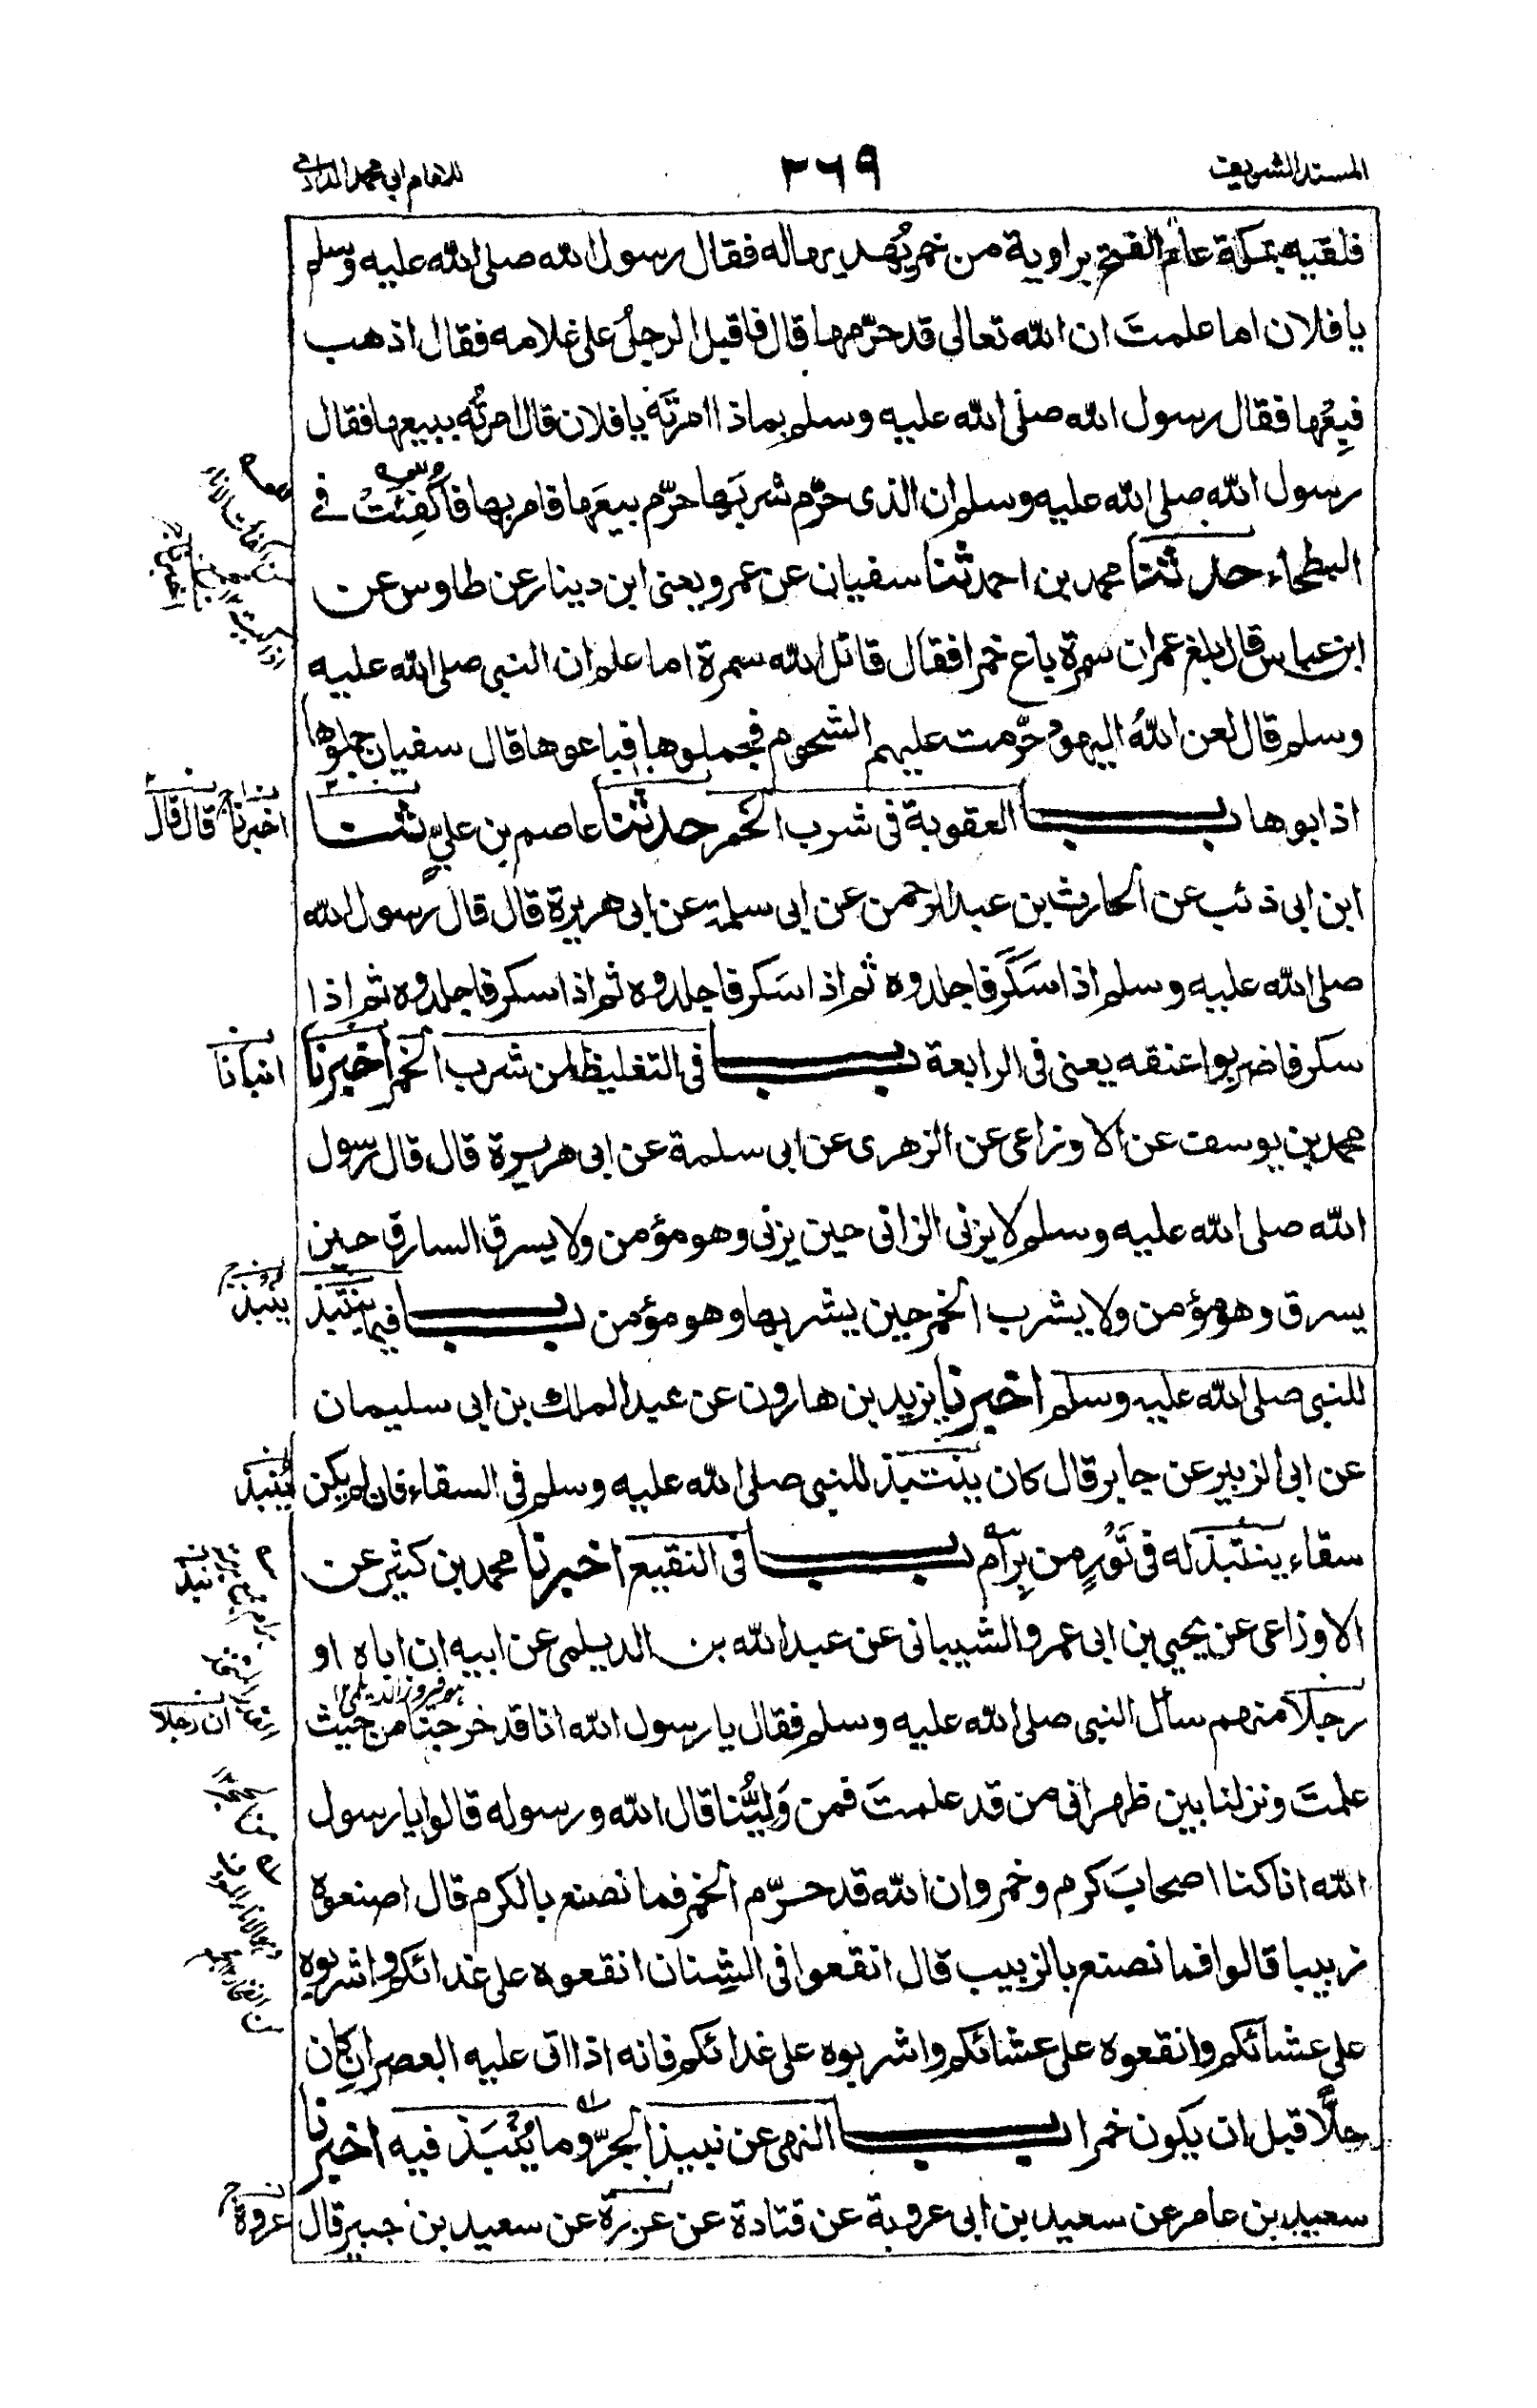 المسند الشريف ٣٦٩ للامام ابي محمد الدارمي
فلقيه بمكة عام الفتح براوية من خمر يُهديها له فقال رسول الله صلى الله عليه وسلم
يا فلان اما علمتَ ان الله تعالى قد حرّمها قال فاقبل الرجلُ على غلامه فقال اذهب
فبِعْها فقال رسول الله صلى الله عليه وسلم بماذا امرتَه يا فلان قال امرتُه ببيعها فقال
رسول الله صلى الله عليه وسلم ان الذى حرّم شربَها حرّم بيعَها فامر بها فأُكفِئَتْ فے
البطحاء حدثنا محمد بن احمد ثنا سفيان عن عمرو يعنى ابن دينار عن طاوس عن
ابن عباس قال بلغ عمر ان سمرة باع خمرا فقال قاتل الله سمرة اما علم ان النبى صلى الله عليه
وسلم قال لعن اللهُ اليهود حرّمت عليهم الشحوم فجملوها فباعوها قال سفيان جملوها
اذابوها باب العقوبة فى شرب الخمر حدثنا عاصم بن عليٍّ ثنا
اخبرنا قال قال
ابن ابى ذئب عن الحارث بن عبد الرحمن عن ابى سلمة عن ابى هريرة قال قال رسول الله
صلى الله عليه وسلم اذا سَكَرَ فاجلدوه ثم اذا سَكر فاجلدوه ثم اذا سكر فاجلدوه ثم اذا
سكر فاضربوا عنقه يعنى فى الرابعة باب فى التغليظ لمن شرب الخمر اخبرنا
انبانا
محمد بن يوسف عن الاوزاعى عن الزهرى عن ابى سلمة عن ابى هريرة قال قال رسول
الله صلى الله عليه وسلم لا يزنى الزانى حين يزنى وهو مؤمن ولا يسرق السارق حين
يسرق وهو مؤمن ولا يشرب الخمر حين يشربها وهو مؤمن باب فيما ينتبذ
ينبذ
للنبى صلى الله عليه وسلم اخبرنا يزيد بن هارون عن عبد الملك بن ابى سليمان
عن ابى الزبير عن جابر قال كان ينتبذ للنبى صلى الله عليه وسلم فى السقاء فان لم يكن
يُنبذ
سقاء ينتبذ له فى تَوْرٍ من بِرام باب فى النقيع اخبرنا محمد بن كثير عن
نبذ
الاوزاعى عن يحيى بن ابى عمرو الشيبانى عن عبد الله بن الديلمى عن ابيه ان اباه او
هو فيروز الديلمى
رجلا منهم سأل النبى صلى الله عليه وسلم فقال يا رسول الله انا قد خرجنا من حيث
ان رجلا
علمتَ ونزلنا بين ظهرانى من قد علمتَ فمن وَليُّنا قال الله ورسوله قالوا يا رسول
الله انا كنا اصحابَ كرم وخمر وان الله قد حرّم الخمر فما نصنع بالكرم قال اصنعوه
زبيبا قالوا فما نصنع بالزبيب قال انقعوا فى الشِنان انقعوه على غدائكم واشربوه
على عشائكم وانقعوه على عشائكم واشربوه على غدائكم فانه اذا اتى عليه العصران كان
حِلًّا قبل ان يكون خمرا باب النهى عن نبيذ الجرّ وما يُنْبَذ فيه اخبرنا
سعيد بن عامر عن سعيد بن ابى عروبة عن قتادة عن عزرة عن سعيد بن جبير قال
عروة